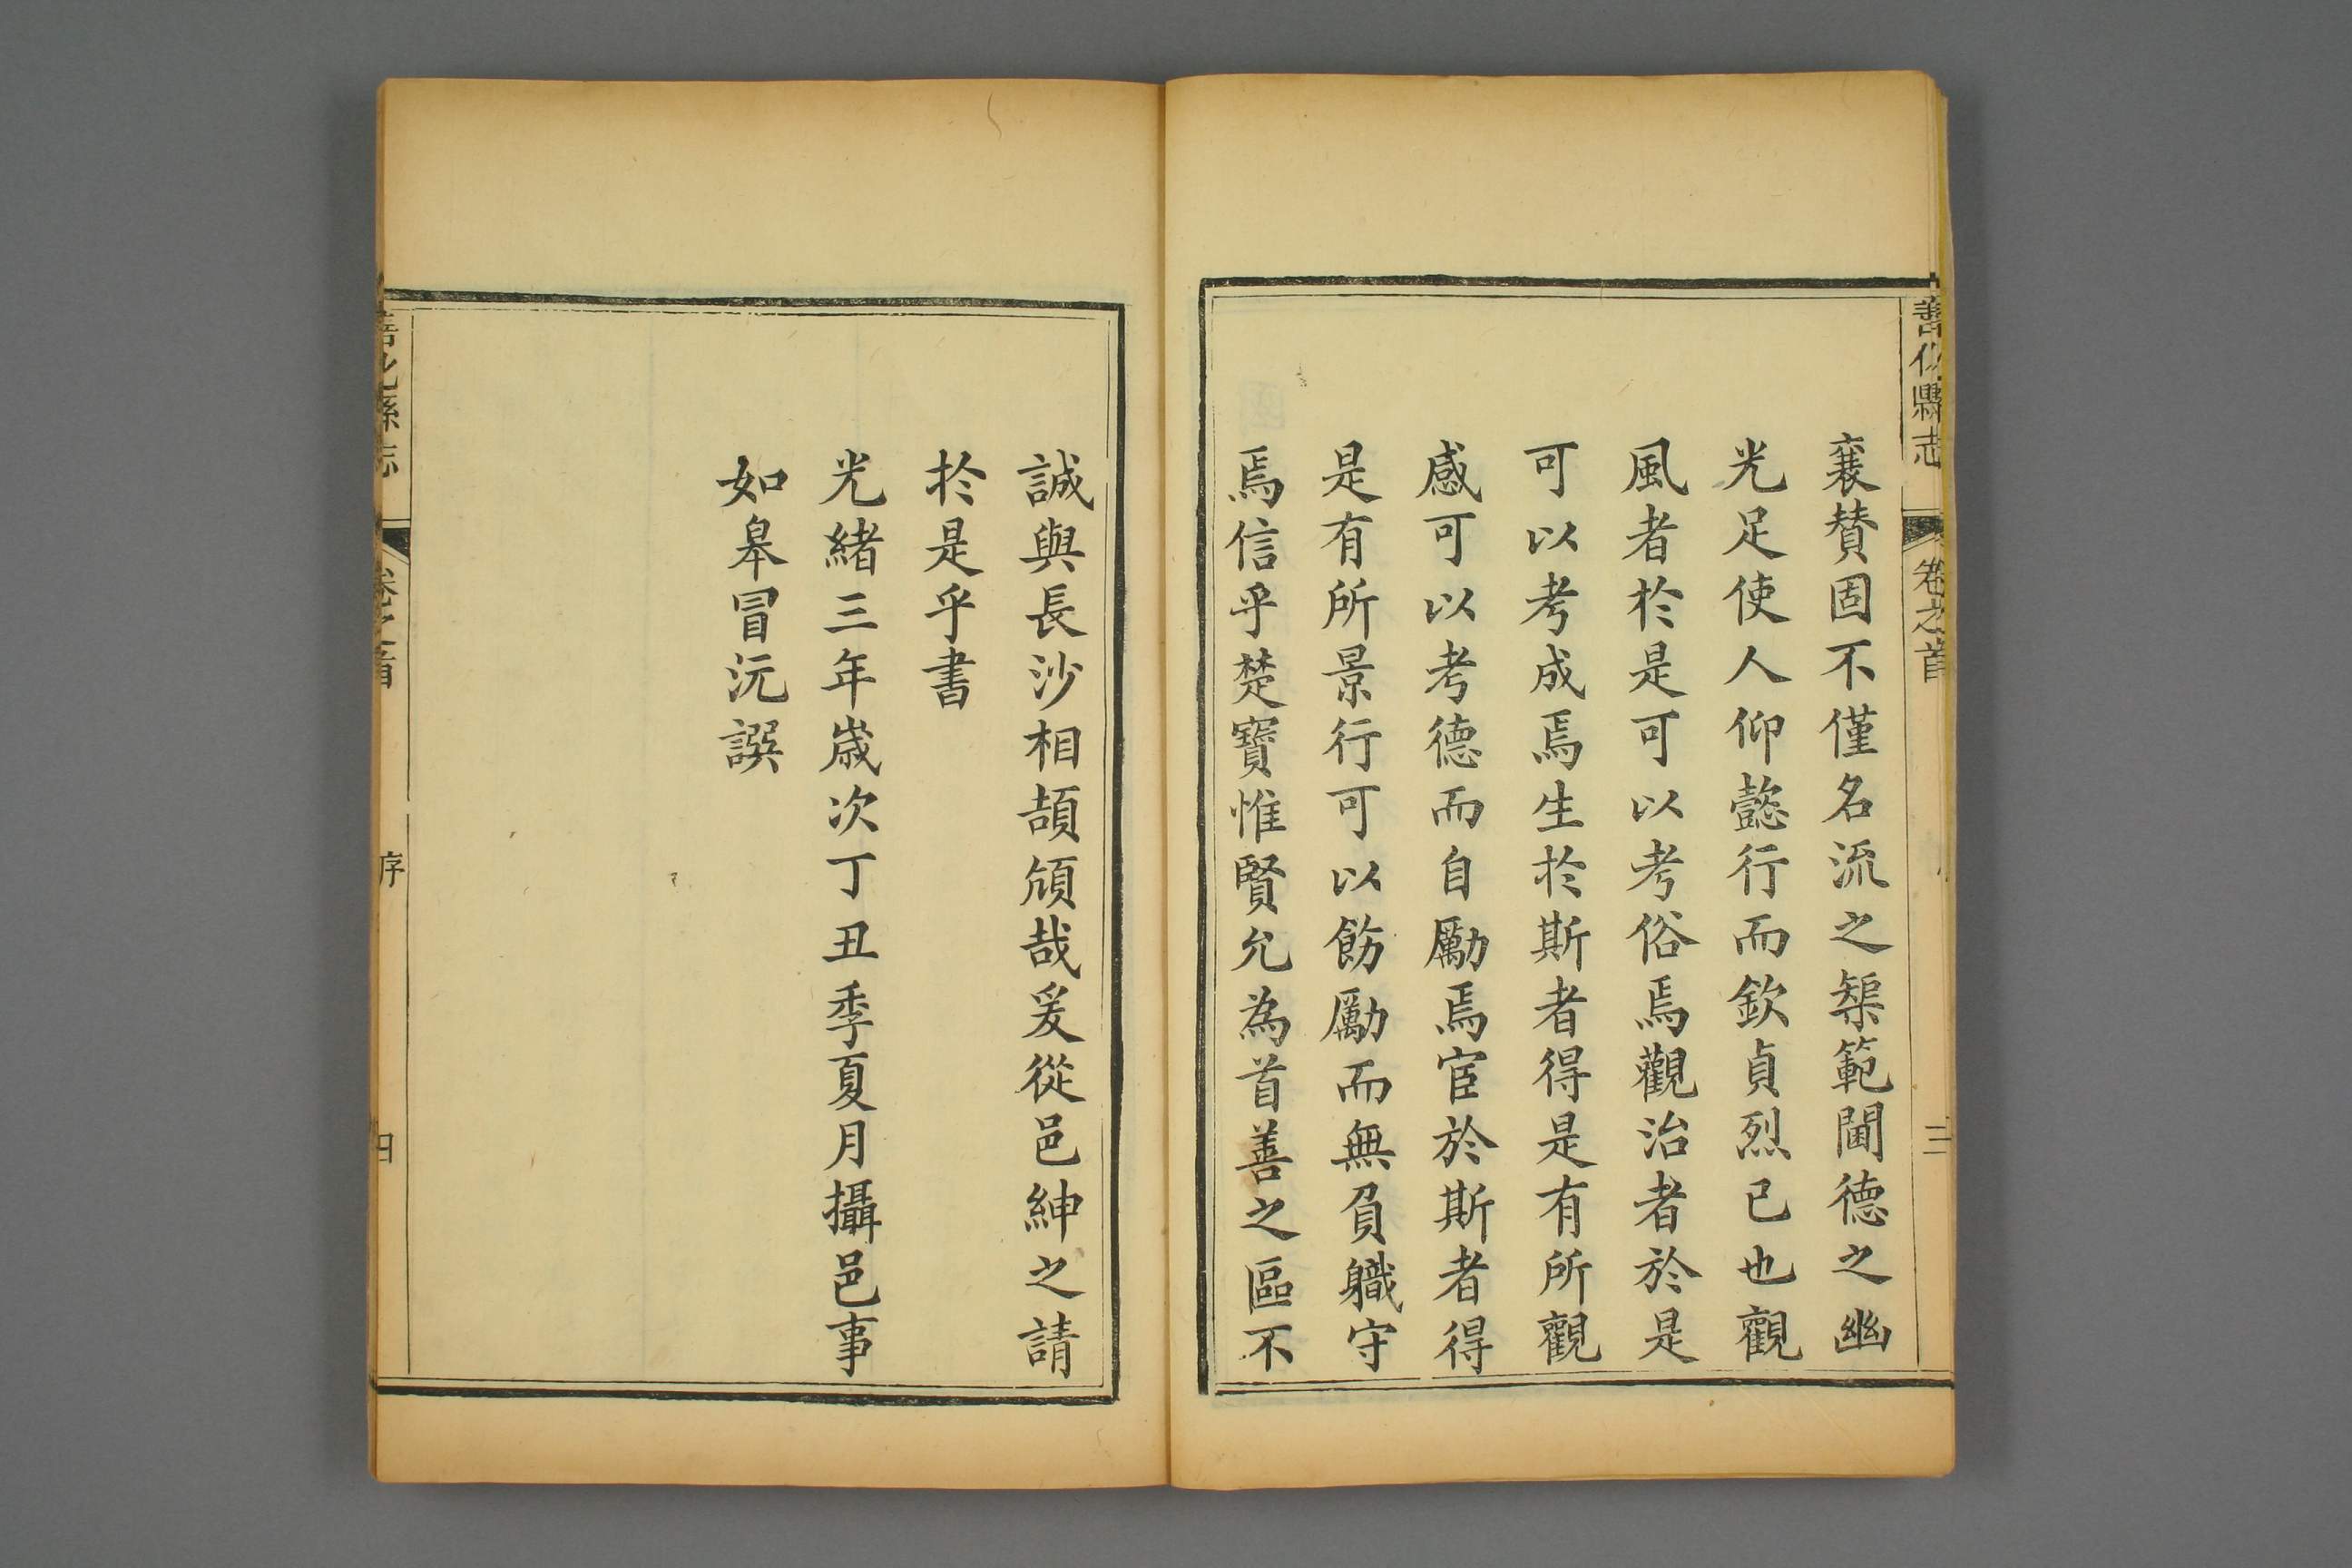 善化縣志
卷之首
三
襄賛固不僅名流之榘範閫德之幽
光足使人仰懿行而欽貞烈已也觀
風者於是可以考俗焉觀治者於是
可以考成焉生於斯者得是有所觀
感可以考德而自勵焉宦於斯者得
是有所景行可以飭勵而無負職守
焉信乎楚寶惟賢允為首善之區不
誠與長沙相頡頏哉爰從邑紳之請
於是乎書
光緒三年歲次丁丑季夏月攝邑事
如皋冒沅譔
善化縣志
卷之首
序
四